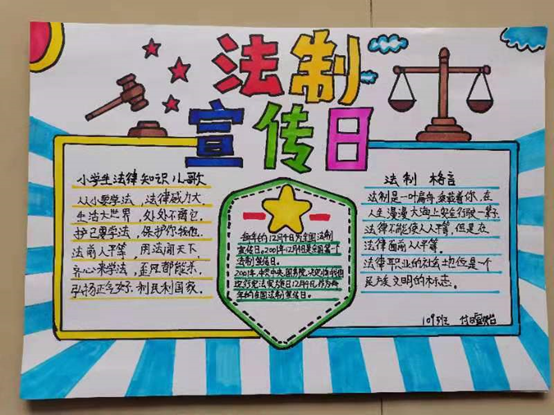 法制
宣传日
小学生法律知识儿歌
从小要学法，法律威力大.
生活大世界，处处不离它.
护已要学法，保护你我他.
法前人平等，用法闯天下.
齐心来学法，歪风都能杀.
弘扬正气好.利民利国家.
每年的12月4日为全国法制
宣传日。2001年12月4日是全国第一个
法制宣传日。
2001年,中共中央,国务院,决定将我国
现行宪法实施日12月4日,作为每
年的全国法制宣传日。
法制 格言
法制是一叶扁舟,乘载着你,在
人生漫漫大海上安全行驶一辈子.
法律不能使人人平等,但是在
法律面前人人平等.
法律职业的社会地位是一个
民族文明的标志。